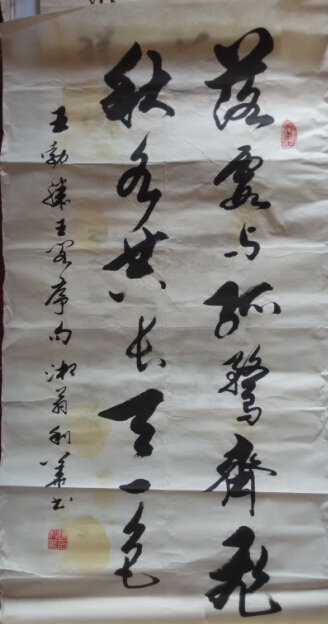 落霞与孤鶩齊飛
秋水共长天一色
王勃滕王阁序句湘翁利华书